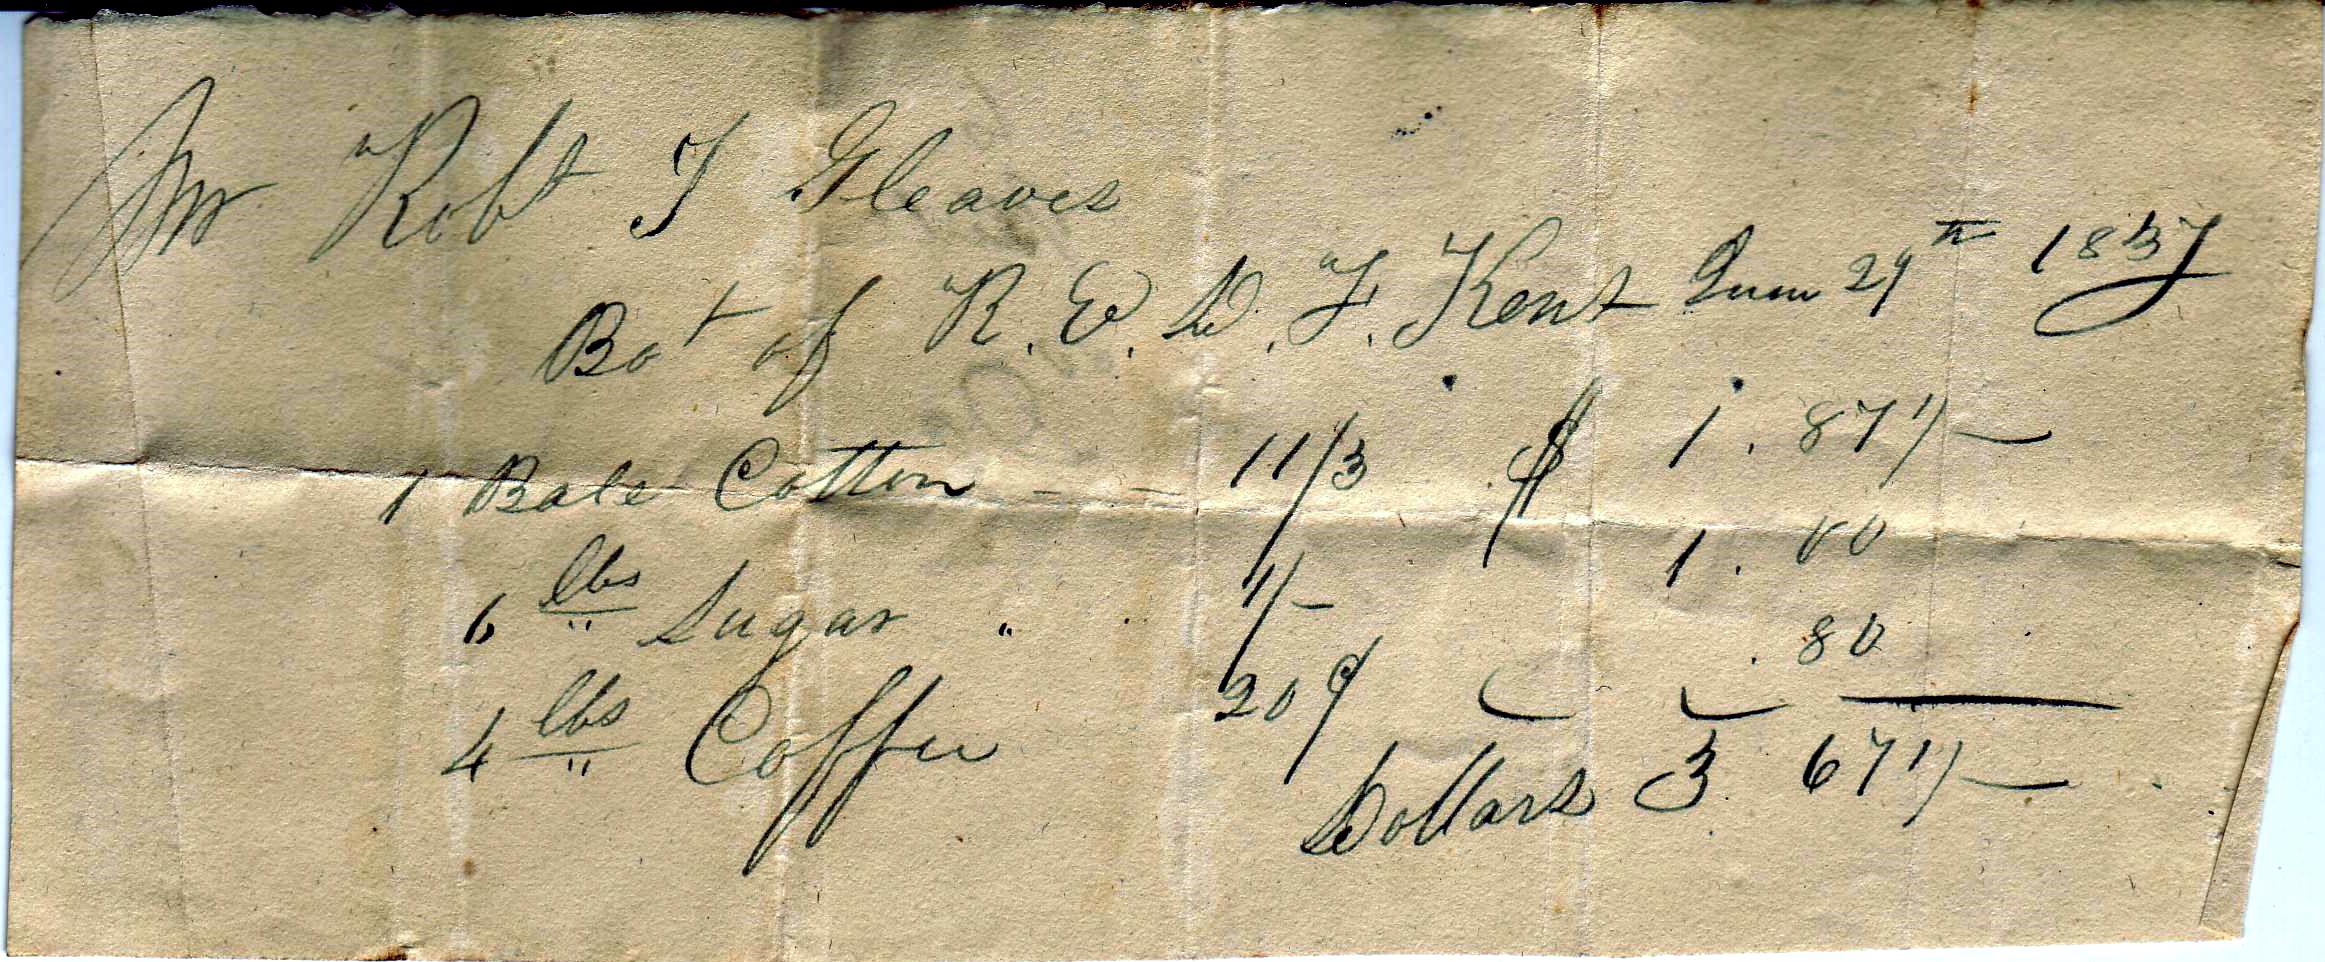 Mr Robt T Gleaves
Bot of R. E. & D. F. Kent June 29th 1837
1 Bale Cotton - - - 11/3 $ 1.87 1/2
6 lbs Sugar " . 1/- 1.00
4 lbs Coffee 20¢ .80
Dollars 3.67 1/2